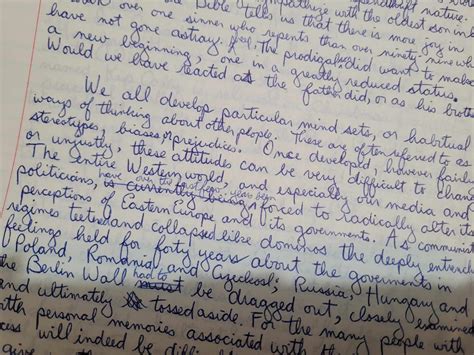 nature,
sympathize with the oldest son in
over one Bible tells us that there is more joy in
one sinner who repents than over ninety nine who
have not gone astray. The prodigal did want to make
a new beginning, one in a greatly reduced status.
Would we have reacted as the father did, or as his brother
We all develop particular mind sets, or habitual
ways of thinking about other people. These are often refered to as
stereotypes, biases, prejudices. Once developed, however fairly
or unjustly, these attitudes can be very difficult to change
The entire Western world, and especially our media and
politicians, have over the past year been forced to radically alter its
perceptions of Eastern Europe and its governments. As communist
regimes teetered and collapsed like dominos the deeply entrenched
feelings held for forty years about the governments in
Poland, Romania and Czechosl; Russia, Hungary and
the Berlin Wall had to must be dragged out, closely examined
and ultimately tossed aside. For the many people with
personal memories associated with
will indeed be